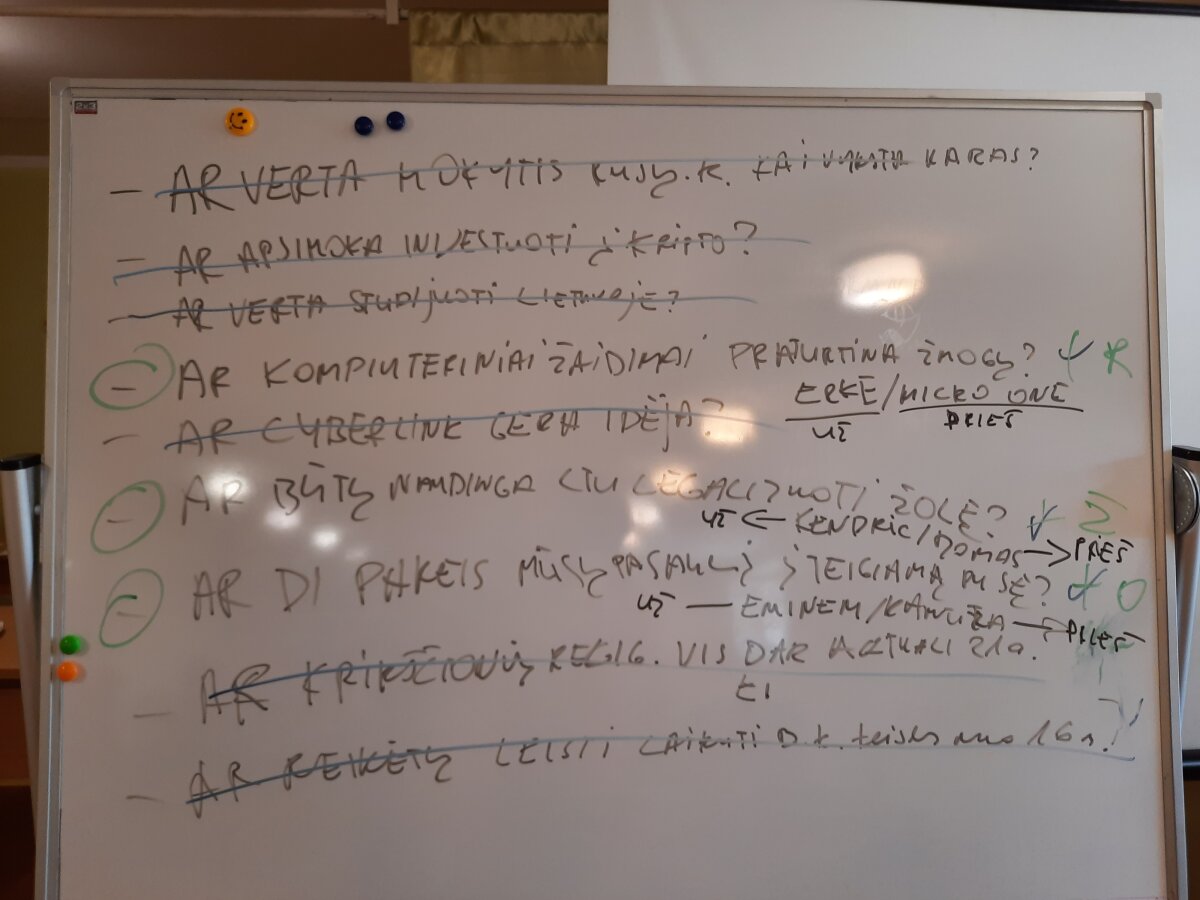 - AR VERTA MOKYTIS RUSŲ.K. KAI VYKSTA KARAS?
- AR APSIMOKA INVESTUOTI Į KRIPTO?
- AR VERTA STUDIJUOTI LIETUVOJE?
- AR KOMPIUTERINIAI ŽAIDIMAI PRATURTINA ŽMOGŲ? R
ERKĖ/MICRO ONE
UŽ PRIEŠ
- AR CYBERLINK GERA IDĖJA?
- AR BŪTŲ NAUDINGA LTU LEGALIZUOTI ŽOLĘ? Ž
UŽ ← KENDRIC/DOMAS → PRIEŠ
- AR DI PAKEIS MŪSŲ PASAULĮ Į TEIGIAMĄ PUSĘ? O
UŽ — EMINEM/ → PRIEŠ
- AR KRIKŠČIONIŲ RELIG. VIS DAR AKTUALI 21a.
- AR REIKĖTŲ LEISTI LAIKYTI B k. teises nuo 16 m.?